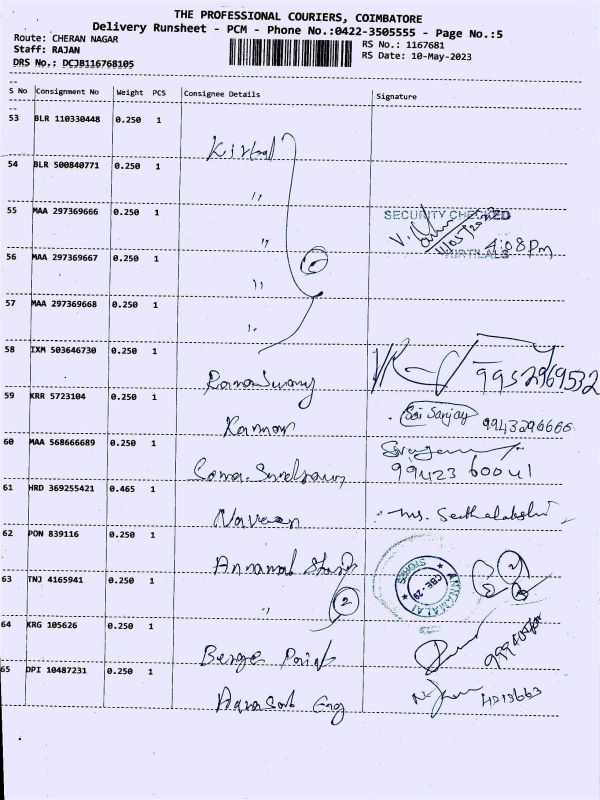 THE PROFESSIONAL COURIERS, COIMBATORE
Delivery Runsheet - PCM - Phone No.:0422-3505555 - Page No.:5
Route: CHERAN NAGAR
RS No.: 1167681
Staff: RAJAN
RS Date: 10-May-2023
DRS No.: DCJB116768105
S No Consignment No Weight PCS Consignee Details Signature
53 BLR 110330448 0.250 1
54 BLR 500840771 0.250 1
"
55 MAA 297369666 0.250 1 SECURITY CHECKED
"
4:08pm
56 MAA 297369667 0.250 1
"
57 MAA 297369668 0.250 1
"
58 IXM 503646730 0.250 1
Ramaswamy 9952969532
59 KRR 5723104 0.250 1
Sai Sanjay
Kannan 9943296666
60 MAA 568666689 0.250 1
99423 60041
61 HRD 369255421 0.465 1
Naveen
62 PON 839116 0.250 1
ANNAMALAI STORES
CBE-29
63 TNJ 4165941 0.250 1
"
2
64 KRG 105626 0.250 1
65 DPI 10487231 0.250 1
Eng